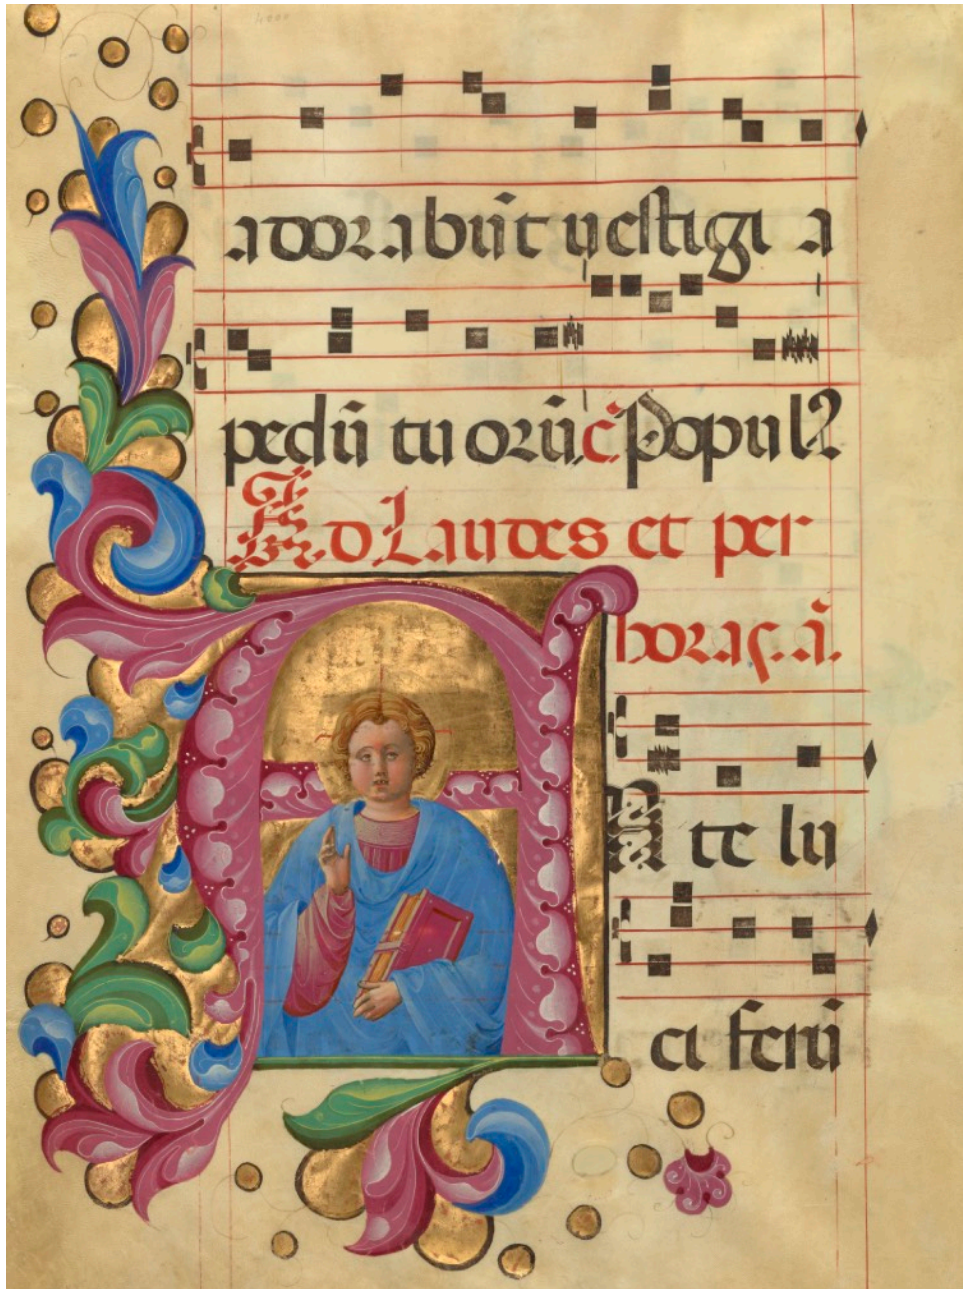 adorabũt vestigi a
pedũ tu orũ. c̃ Popul᷒
Ad Laudes et per
horas. ã.
AN te lu
ci ferũ